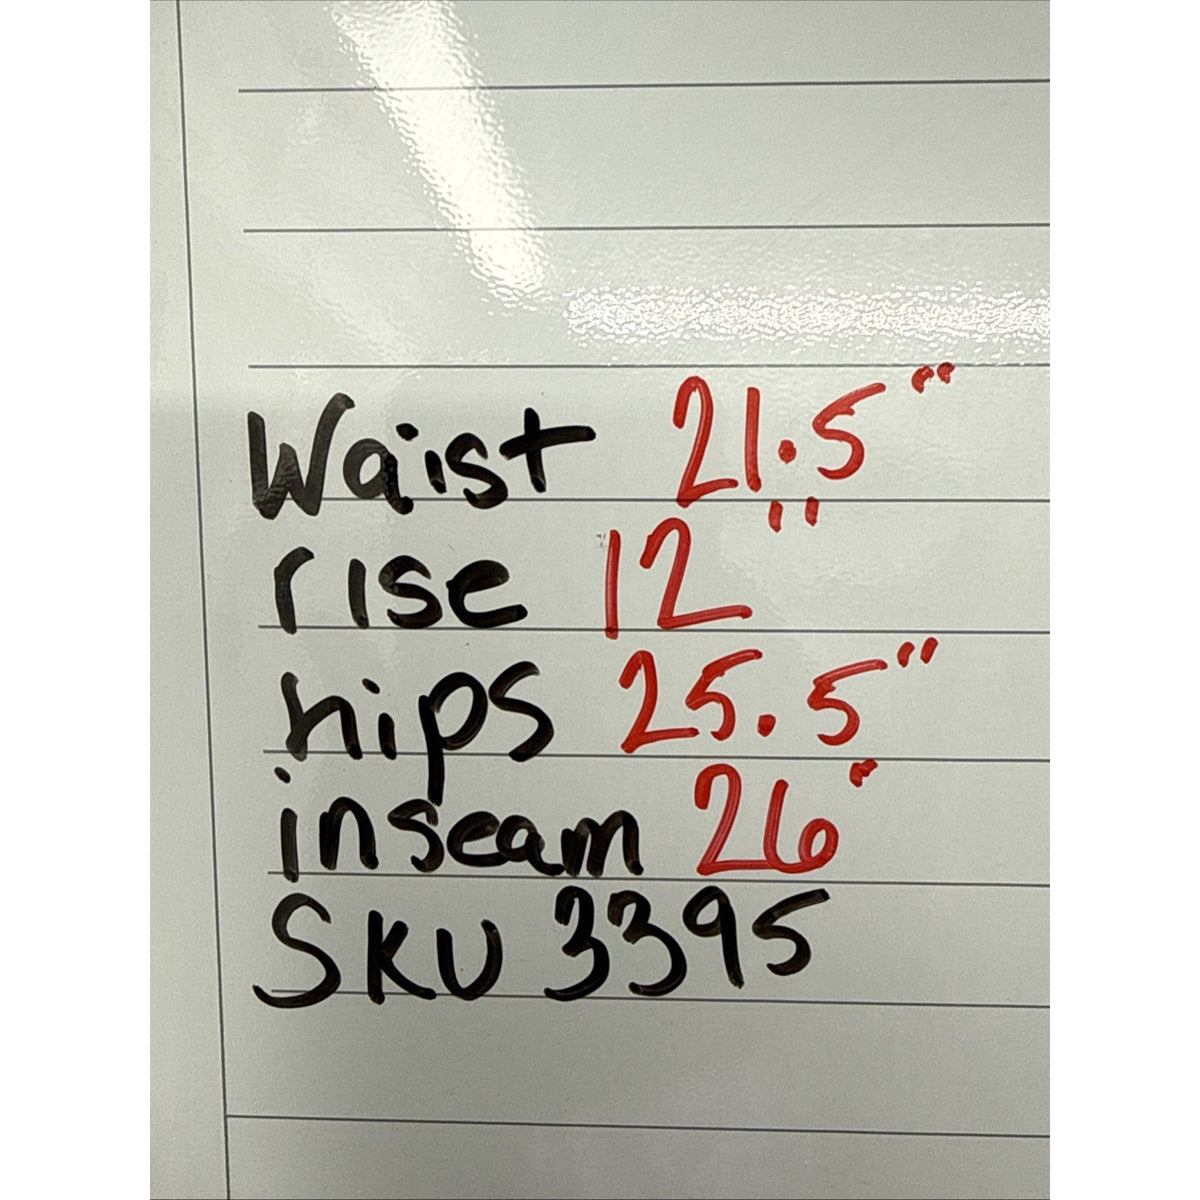 Waist 21.5"
rise 12"
hips 25.5"
inseam 26"
SKU 3395